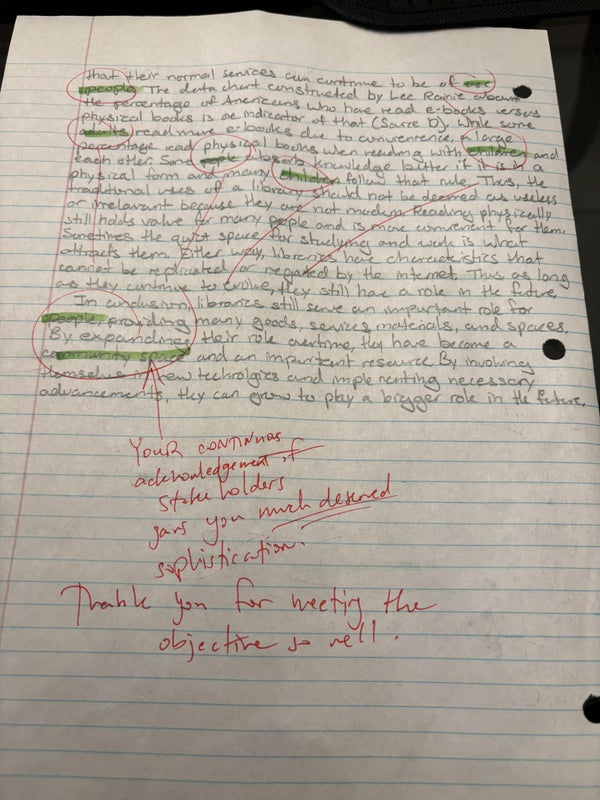 that their normal services can continue to be of use
people. The data chart constructed by Lee Rainie about
the percentage of Americans who have read e-books versus
physical books is an indicator of that (Source D). While some
adults read more e-books due to convenience, a large
percentage read physical books when reading with children and
each other. Some people absorb knowledge better if it is in a
physical form and many children follow that rule. Thus, the
traditional uses of a library should not be deemed as useless
or irrelavant because they are not modern. Reading physically
still holds value for many people and is more convenient for them.
Sometimes the quiet space for studying and work is what
attracts them. Either way, libraries have characteristics that
cannot be replicated or negated by the internet. Thus as long
as they continue to evolve, they still have a role in the future.
In conclusion, libraries still serve an important role for
people, providing many goods, services, materials, and spaces.
By expanding their role overtime, they have become a
community space and an important resource. By involving
themselves in new technolgies and implementing necessary
advancements, they can grow to play a bigger role in the future.
Your continuos
acknowledgement of
stakeholders
gars you much deserved
sophistication.
Thank you for meeting the
objective so well.